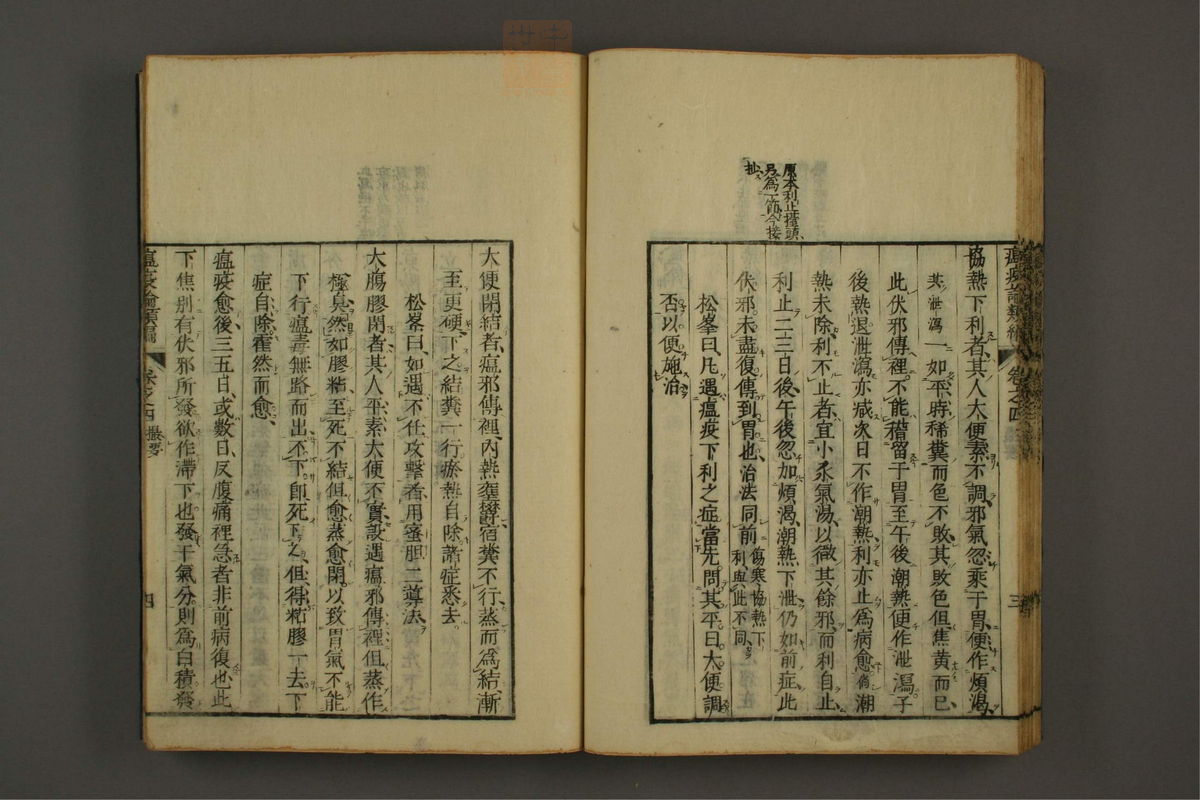 瘟疫論類編 卷之四 三
原本利止擡頭
另為一節今接
抄
協熱下利者其人大便素不調邪氣忽乘于胃便作煩渴
其泄瀉一如平時稀糞而色不敗其敗色但焦黃而已
此伏邪傳裡不能稽留于胃至午後潮熱便作泄瀉子
後熱退泄瀉亦減次日不作潮熱利亦止為病愈倘潮
熱未除利不止者宜小承氣湯以微其餘邪而利自止
利止二三日後午後忽加煩渴潮熱下泄仍如前症此
伏邪未盡復傳到胃也治法同前傷寒協熱下
利與此不同
松峯曰凡遇瘟疫下利之症當先問其平日大便調
否以便施治
大便閉結者瘟邪傳裡內熱壅鬱宿糞不行蒸而為結漸
至更硬下之結糞一行瘀熱自除諸症悉去
松峯曰如遇不任攻擊者用蜜胆二導法
大腸膠閉者其人平素大便不實設遇瘟邪傳裡但蒸作
極臭然如膠粘至死不結但愈蒸愈閉以致胃氣不能
下行瘟毒無路而出不下即死下之但得粘膠一去下
症自除霍然而愈
瘟疫愈後三五日或數日反腹痛裡急者非前病復也此
下焦別有伏邪所發欲作滯下也發于氣分則為白積發
瘟疫論類編 卷之四 撮要 四